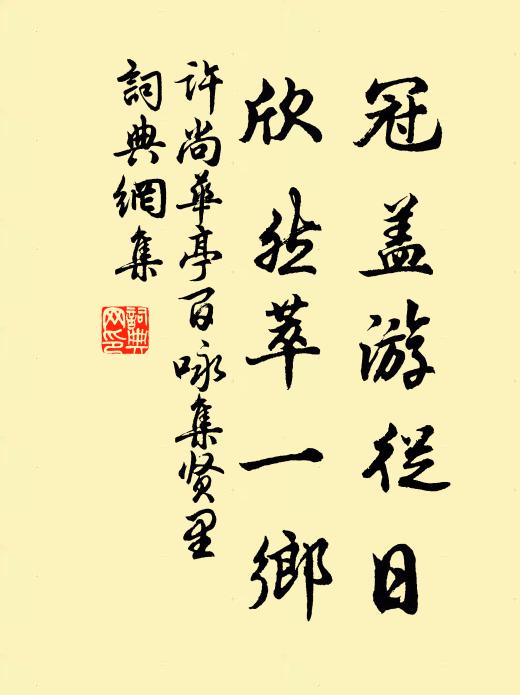 冠盖游從日
欣然萃一鄉
许尚華亭百咏集贤里
詞典網集
詞典网印